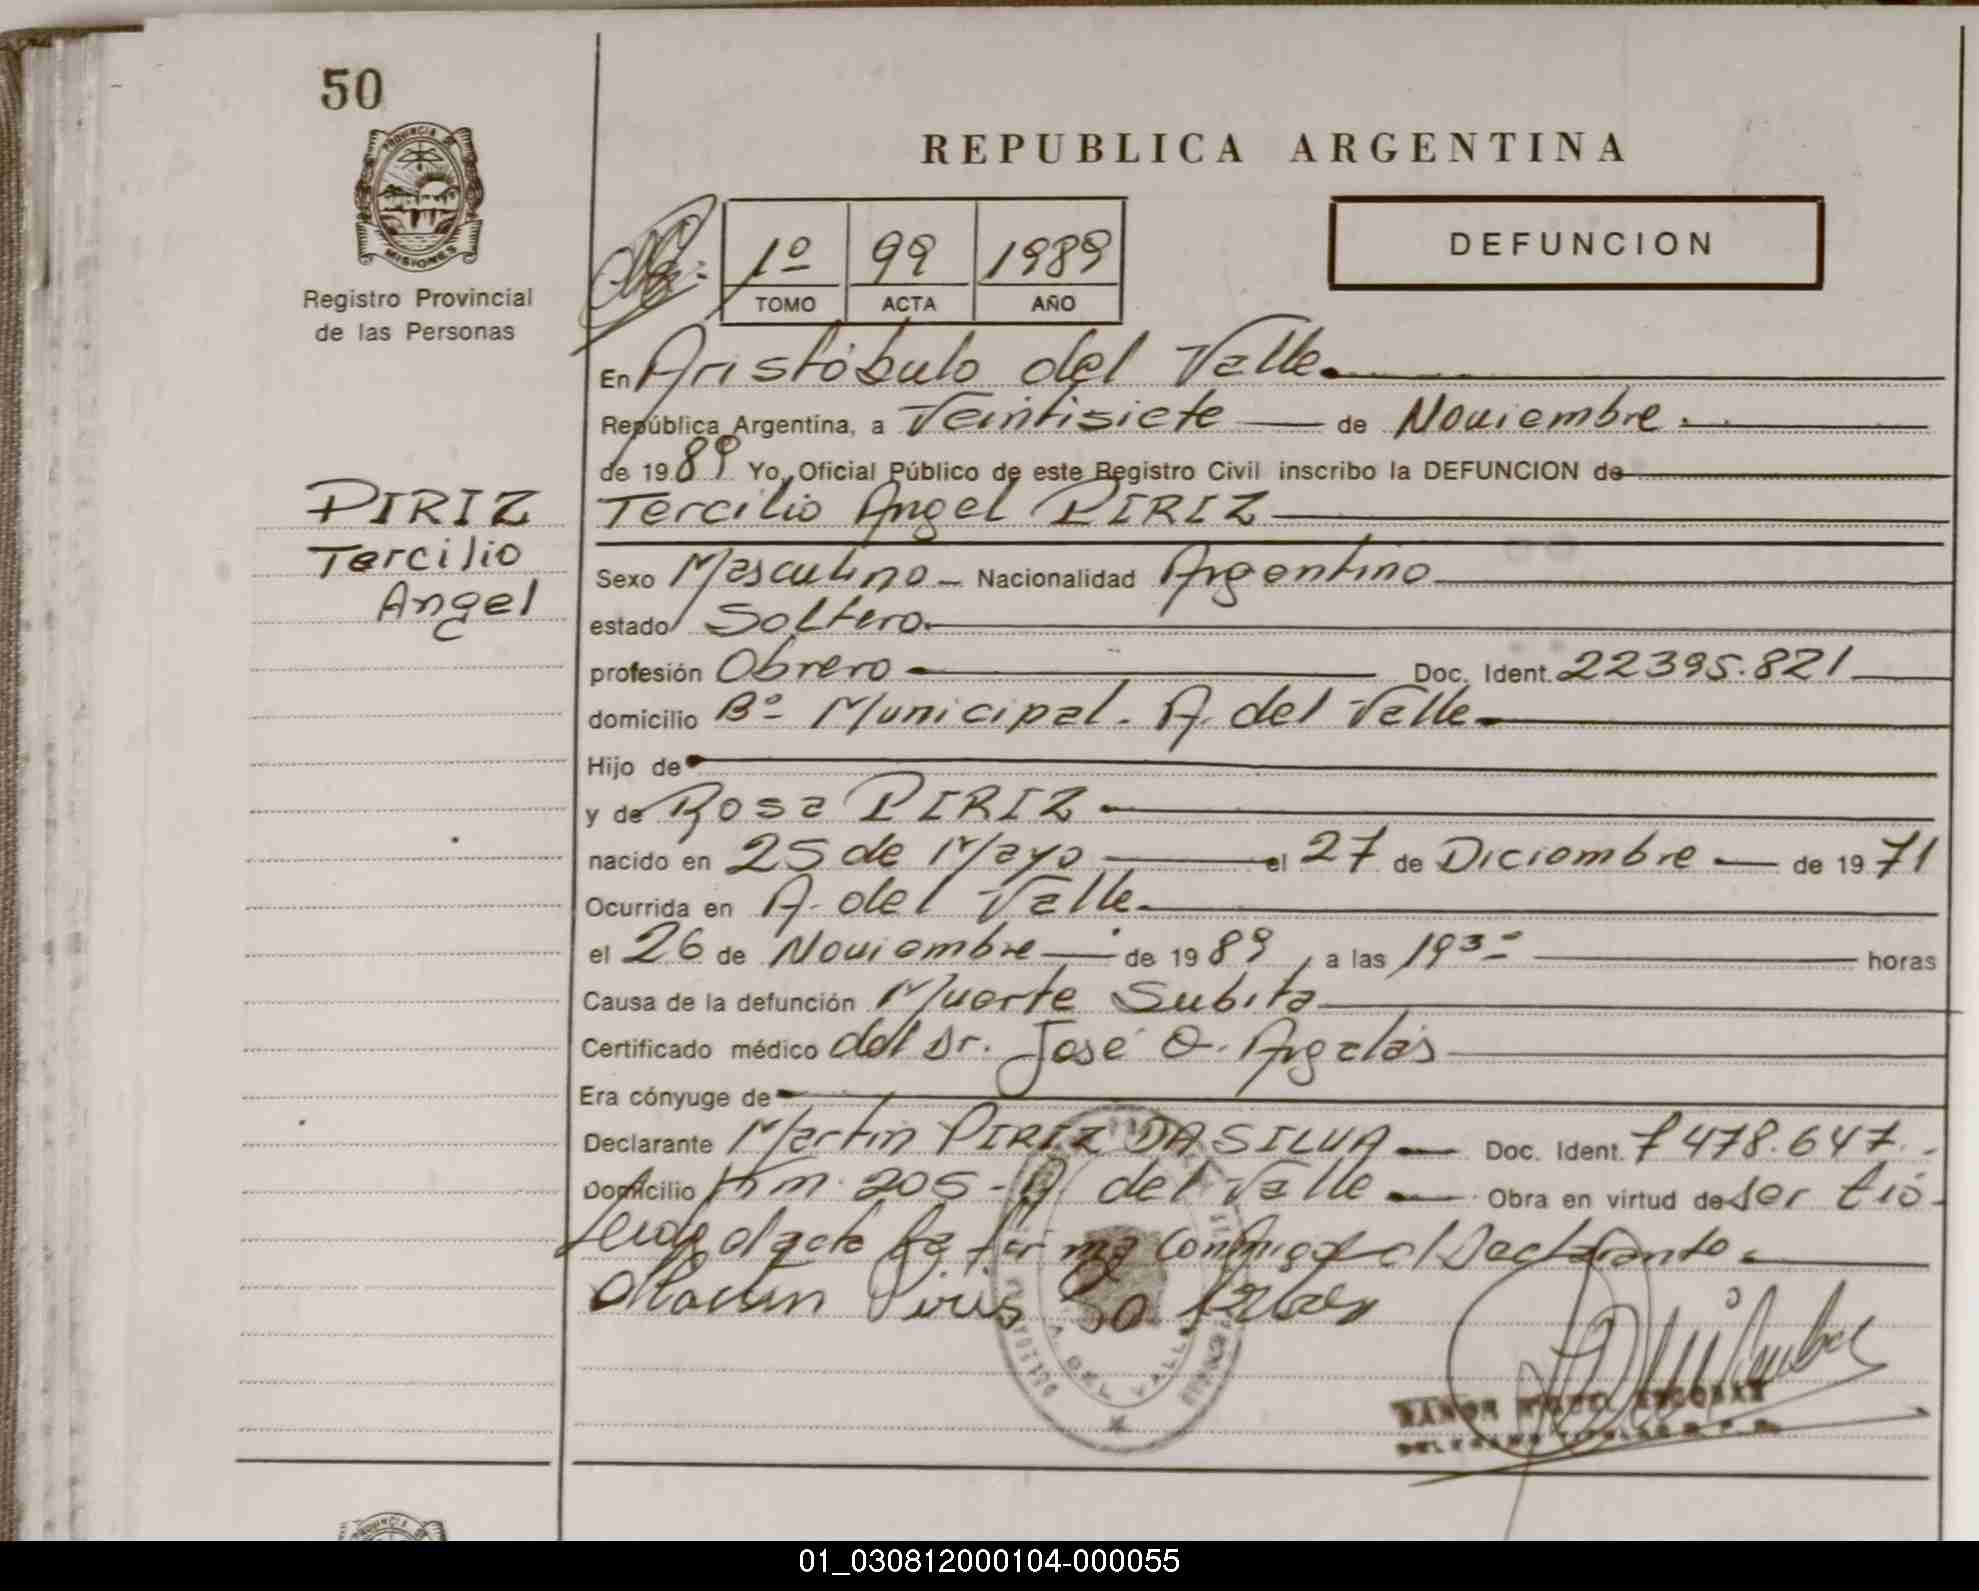 50
PROVINCIA DE
MISIONES
Registro Provincial
de las Personas
REPUBLICA ARGENTINA
DEFUNCION
1º 99 1989
TOMO ACTA AÑO
En Aristóbulo del Valle.
República Argentina, a Veintisiete de Noviembre.
de 1989 Yo, Oficial Público de este Registro Civil inscribo la DEFUNCION de
PIRIZ
Tercilio
Angel
Tercilio Angel PIRIZ
Sexo Masculino - Nacionalidad Argentino
estado Soltero.
profesión Obrero Doc. Ident. 22395.821
domicilio Bº Municipal. A. del Valle
Hijo de
y de Rosa PIRIZ
nacido en 25 de Mayo el 27 de Diciembre de 1971
Ocurrida en A. del Valle.
el 26 de Noviembre de 1989, a las 19³⁰ horas
Causa de la defunción Muerte Subita
Certificado médico del Dr. José O. Argalás
Era cónyuge de
Declarante Martin PIRIZ DA SILVA Doc. Ident. 7478.647.
Domicilio Km. 205 - A. del Valle Obra en virtud de ser tio.
Leida el acta la firma conmigo el Declarante.
A. DEL VALLE
RAMON MIGUEL ESCOBAR
01_030812000104-000055